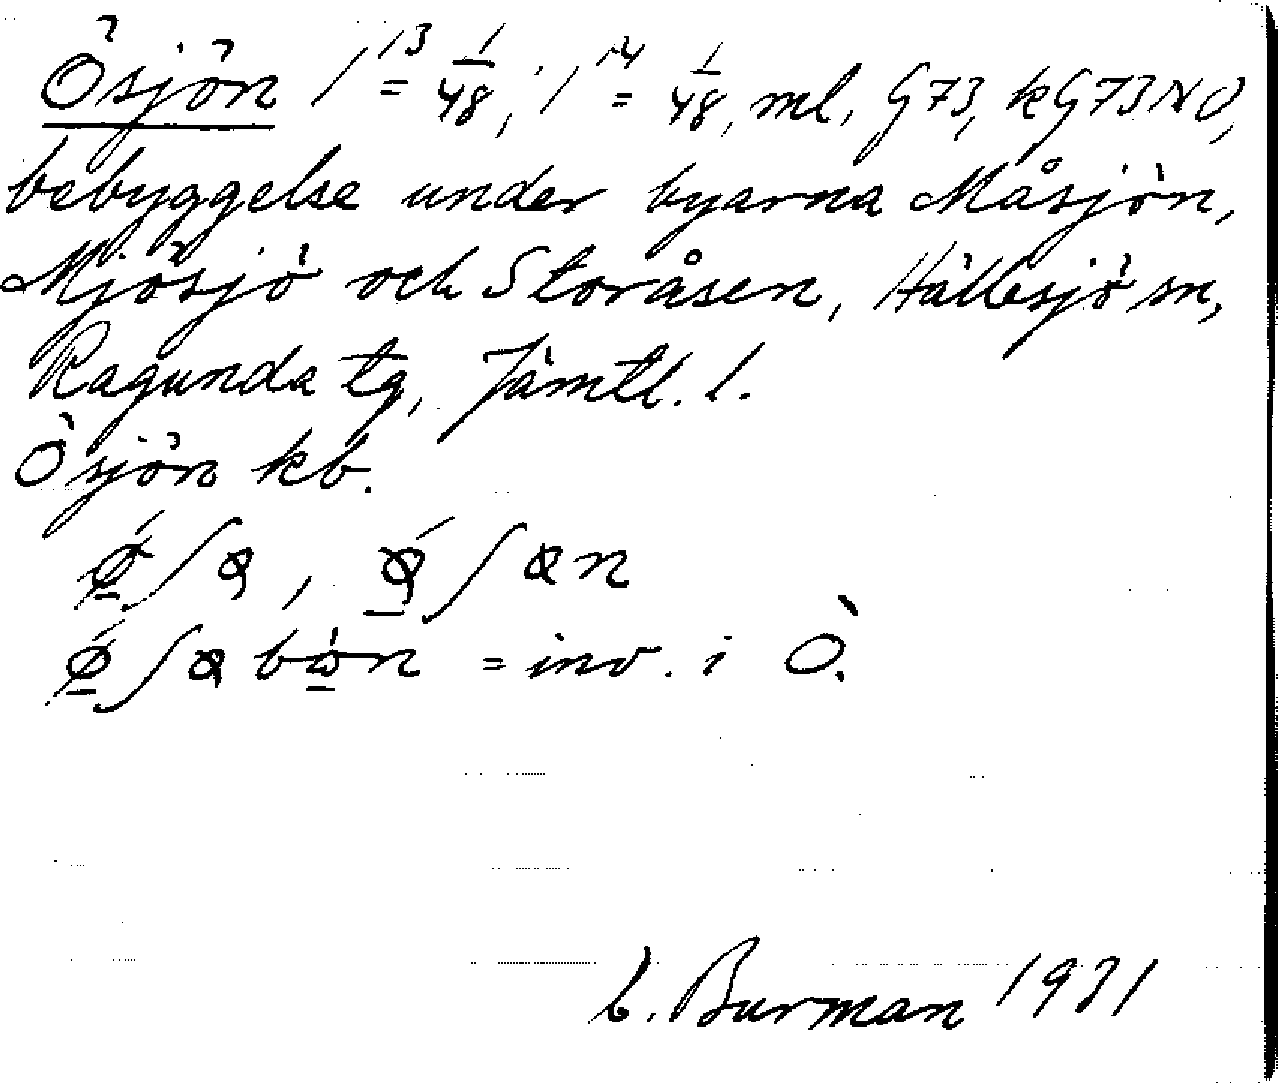 Ösjön 1¹³ = 1/48, 1¹⁴ = 1/48, ml, G73, kG73NO,
bebyggelse under byarna Måsjön,
Mjösjö och Storåsen, Hällesjö sn,
Ragunda tg, Jämtl. l.
Ösjön kb.
= inv. i Ö.
Burman 1931